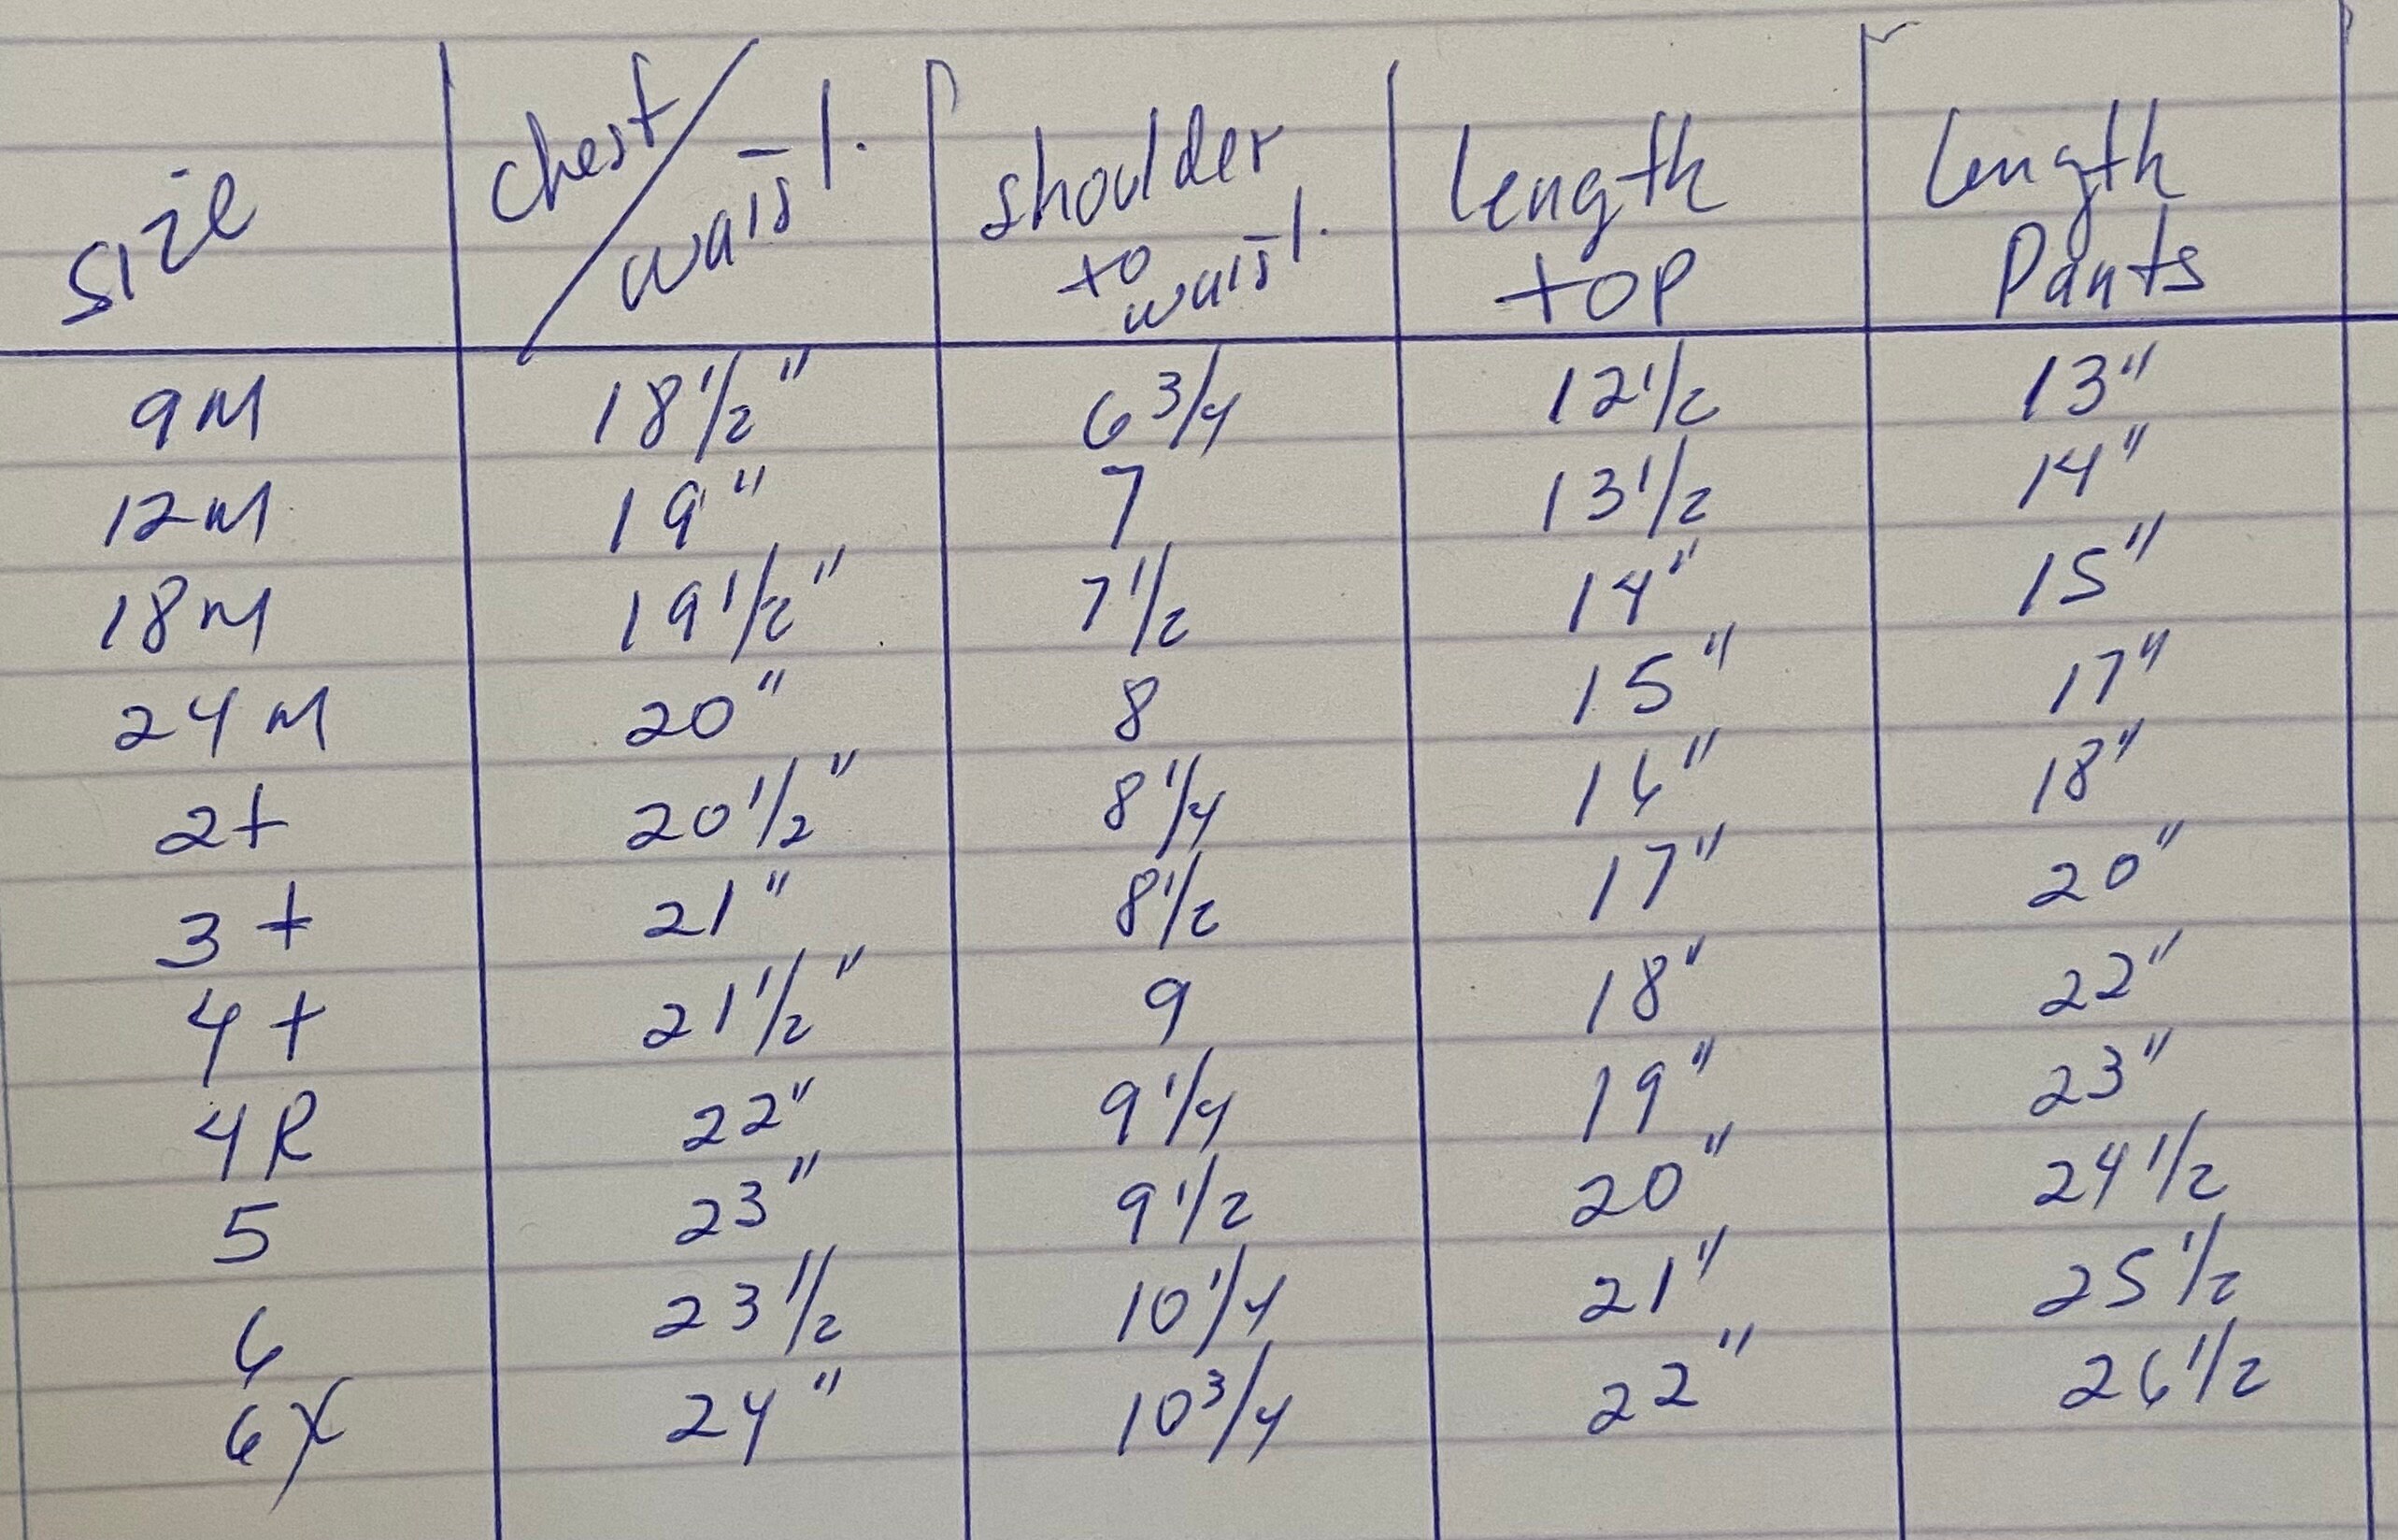 size | chest/waist. | shoulder to waist. | length top | length Pants
9M | 18 1/2" | 6 3/4 | 12 1/2 | 13"
12M | 19" | 7 | 13 1/2 | 14"
18M | 19 1/2" | 7 1/2 | 14" | 15"
24M | 20" | 8 | 15" | 17"
2t | 20 1/2" | 8 1/4 | 16" | 18"
3t | 21" | 8 1/2 | 17" | 20"
4t | 21 1/2" | 9 | 18" | 22"
4R | 22" | 9 1/4 | 19" | 23"
5 | 23" | 9 1/2 | 20" | 24 1/2
6 | 23 1/2 | 10 1/4 | 21" | 25 1/2
6X | 24" | 10 3/4 | 22" | 26 1/2